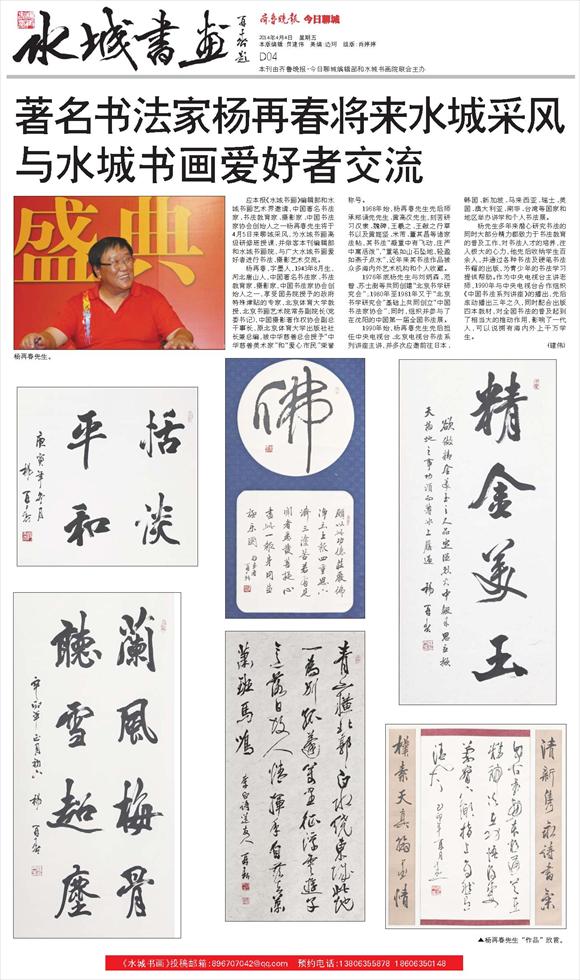 水城书画
齐鲁晚报 今日聊城
2014年4月4日 星期五
D04
本刊由齐鲁晚报·今日聊城编辑部和水城书画院联合主办
著名书法家杨再春将来水城采风
与水城书画爱好者交流
应本报《水城书画》编辑部和水
城书画艺术界邀请,中国著名书法
家、书法教育家、摄影家,中国书法
家协会创始人之一杨再春先生将于
4月5日来聊城采风,为水城书画高
级研修班授课,并做客本刊编辑部
和水城书画院,与广大水城书画爱
好者进行书法、摄影艺术交流。
杨再春,字墨人,1943年8月生,
河北唐山人,中国著名书法家、书法
教育家、摄影家,中国书法家协会创
始人之一,享受国务院授予的政府
特殊津贴的专家,北京体育大学教
授,北京书画艺术院常务副院长(党
委书记),中国摄影著作权协会副总
干事长,原北京体育大学出版社社
长兼总编,被中华慈善总会授予“中
华慈善美术家”和“爱心市民”荣誉
称号。
1968年始,杨再春先生先后师
承郑诵先先生、黄高汉先生,刻苦研
习汉隶、魏碑,王羲之、王献之行草
书以及黄庭坚、米芾、董其昌等诸家
法帖,其书法“凝重中有飞动,庄严
中寓活泼”,“重笔如山石坠地,轻盈
如燕子点水”,近年来其书法作品被
众多海内外艺术机构和个人收藏。
1976年底杨先生与刘炳森、范
曾、苏士澍等共同创建“北京书学研
究会”;1980年至1981年又于“北京
书学研究会”基础上共同创立“中国
书法家协会”;同时,组织并参与了
在沈阳的中国第一届全国书法展。
1990年始,杨再春先生先后担
任中央电视台、北京电视台书法系
列讲座主讲,并多次应邀前往日本、
韩国、新加坡、马来西亚、瑞士、英
国、澳大利亚、南非、台湾等国家和
地区举办讲学和个人书法展。
杨先生多年来潜心研究书法的
同时大部分精力都致力于书法教育
的普及工作,对书法人才的培养,注
入极大的心力,他先后收纳学生百
余人,并通过各种书法及硬笔书法
书籍的出版,为青少年的书法学习
提供帮助。作为中央电视台主讲老
师,1990年与中央电视台合作组织
《中国书法系列讲座》的播出,先后
滚动播出三年之久,同时配合出版
四本教材,对全国书法的普及起到
了相当大的推动作用,影响了一代
人,可以说拥有海内外上千万学
生。
(建伟)
杨再春先生。
盛典
恬淡
平和
庚寅年
佛
精金美玉
蘭風梅骨
聽雪超塵
青山橫北郭白水繞東城此地
一為別孤蓬萬里征浮雲遊子
意落日故人情揮手自茲去蕭
蕭班馬鳴
李白詩送友人
▲杨再春先生“作品”欣赏。
《水城书画》投稿邮箱:896707042@qq.com 预约电话:13806355878 18606350148